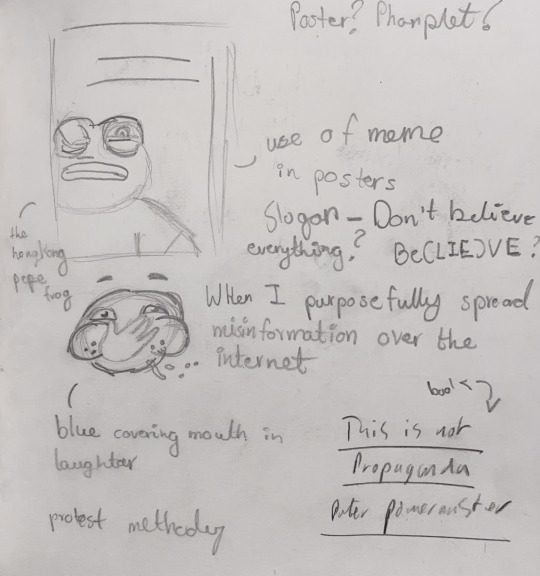 Poster? Phamplet?
use of meme
in posters
Slogan - Don't believe
everything? Be(LIE)VE?
the
hongkong
pepe
frog
When I purposefully spread
misinformation over the
internet
blue covering mouth in
laughter
book
This is not
Propaganda
Peter Pomerantsev
protest methodey